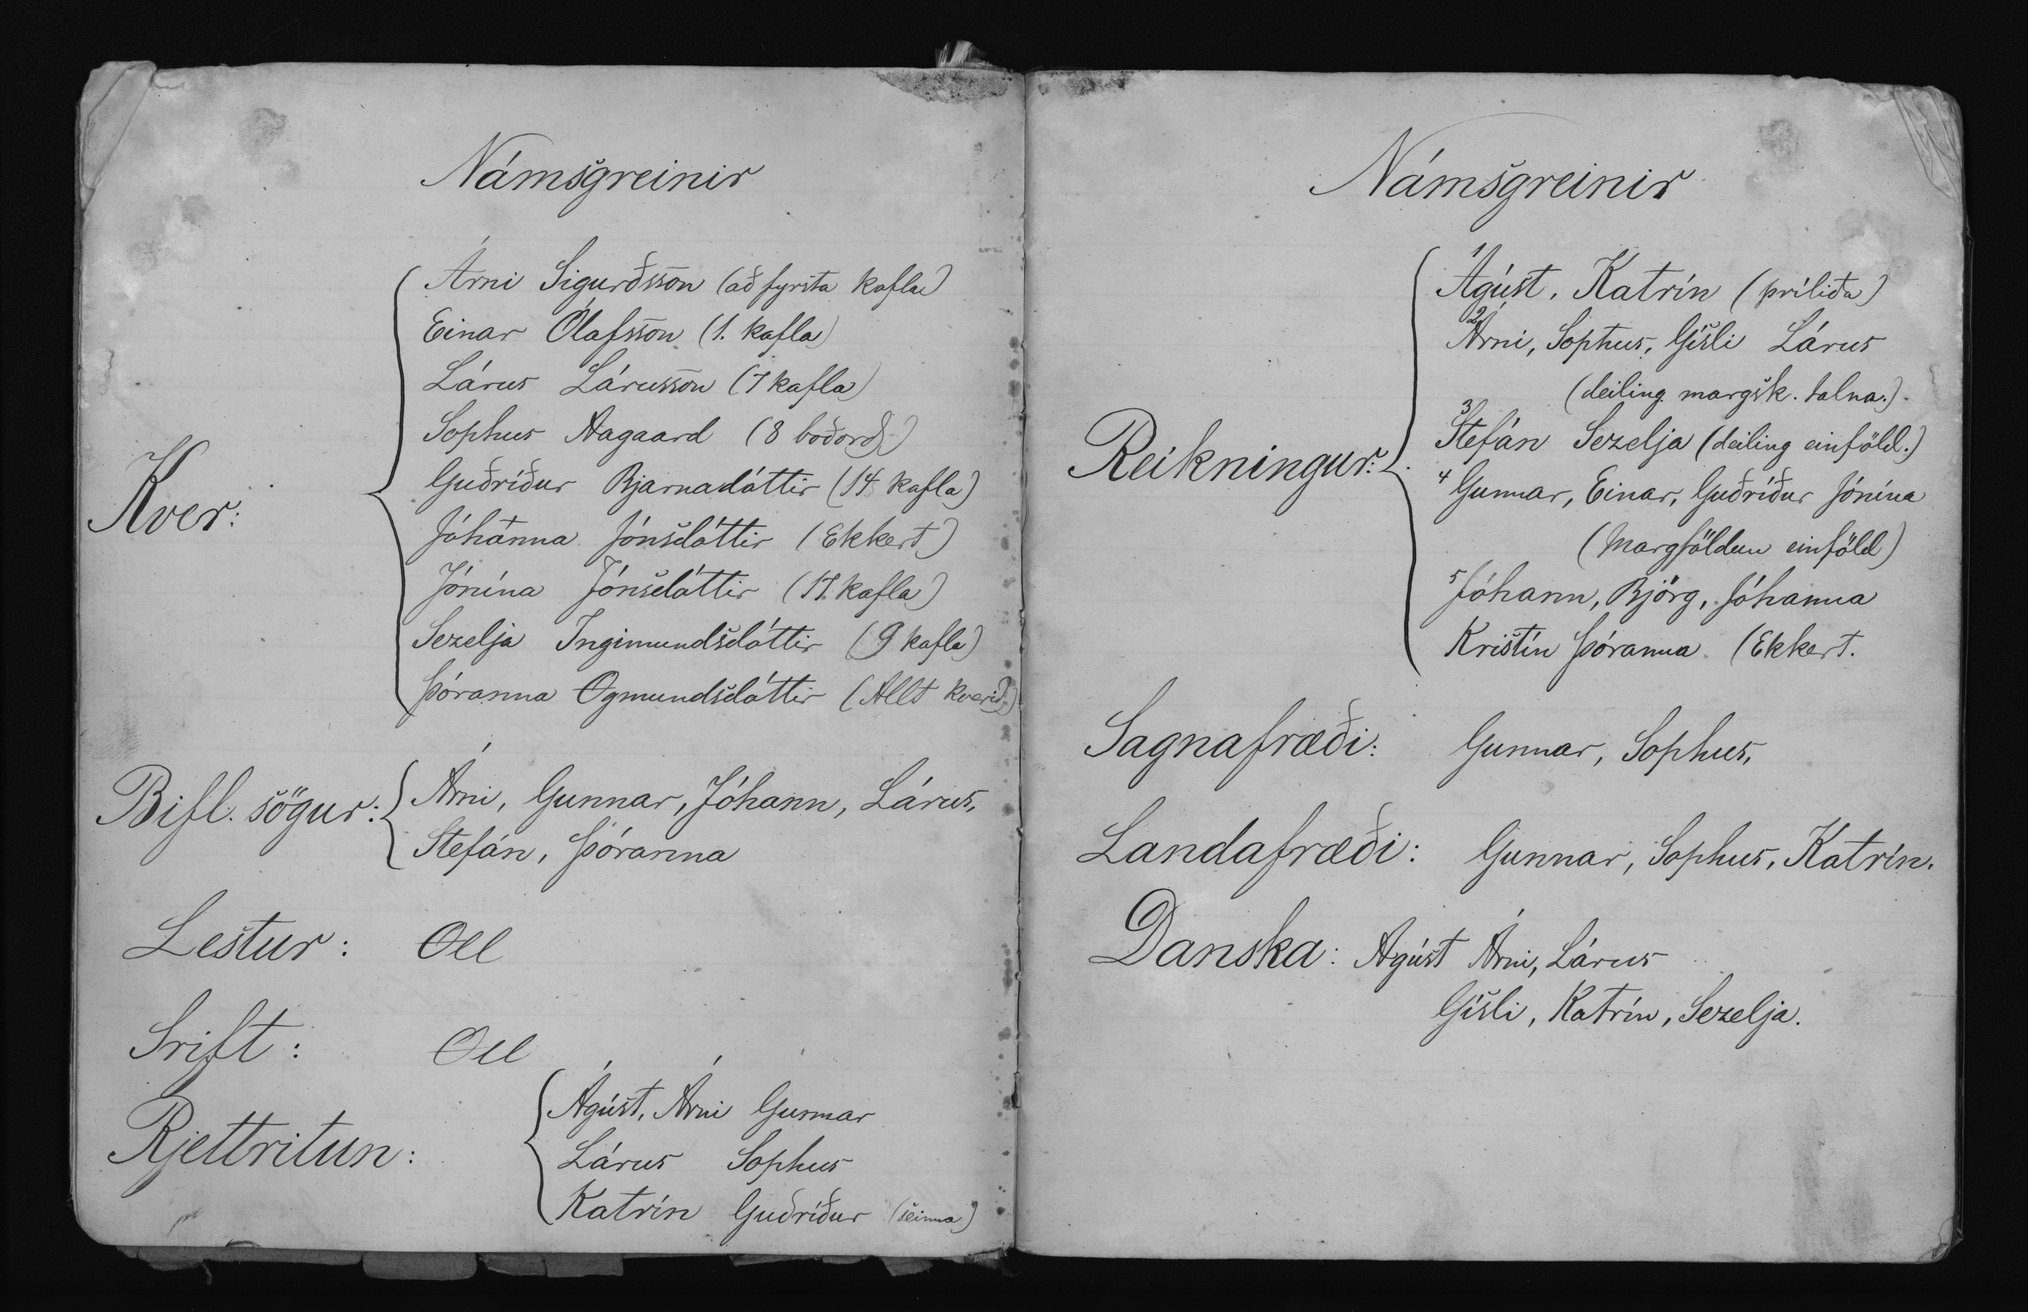 Námsgreinir
Árni Sigurðsson (að fyrsta kafla)
Einar Ólafsson (1. kafla)
Lárus Lárusson (7 kafla)
Sophus Aagaard (8 boðorð.)
Kver:
Guðríður Bjarnadóttir (14 kafla)
Jóhanna Jónsdóttir (Ekkert)
Jónína Jónsdóttir (17. kafla)
Sezelja Ingimundsdóttir (9 kafla)
Þóranna Ogmundsdóttir (Allt kverið.)
Bifl. sögur:
Árni, Gunnar, Jóhann, Lárus,
Stefán, Þóranna
Lestur: Oll
Srift: Oll
Rjettritun:
Ágúst, Árni Gunnar
Lárus Sophus
Katrín Guðríður (seinna)
Námsgreinir
1 Ágúst, Katrín (þríliða)
2 Árni, Sophus, Gísli Lárus
(deiling margsk. talna.)
Reikningur:
3 Stefán Sezelja (deiling einföld.)
4 Gunnar, Einar, Guðríður Jónína
(Margföldun einföld)
5 Jóhann, Björg, Jóhanna
Kristín Þóranna (Ekkert.
Sagnafræði: Gunnar, Sophus,
Landafræði: Gunnar, Sophus, Katrín.
Danska: Agúst Árni, Lárus
Gísli, Katrín, Sezelja.